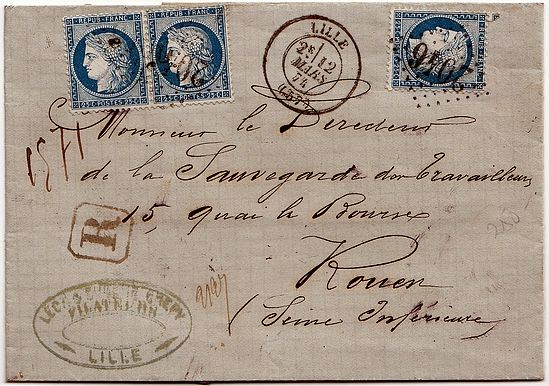 REPUB. FRANC.
REPUB. FRANC.
25 C. POSTES 25 C.
25 C. POSTES 25 C.
2046
LILLE
2E 12
MARS
74
(57)
2046
Monsieur le Directeur
de la Sauvegarde des Travailleurs
15, quai la Bourse
Rouen
(Seine Inférieure)
R
FILATEURS
LILLE